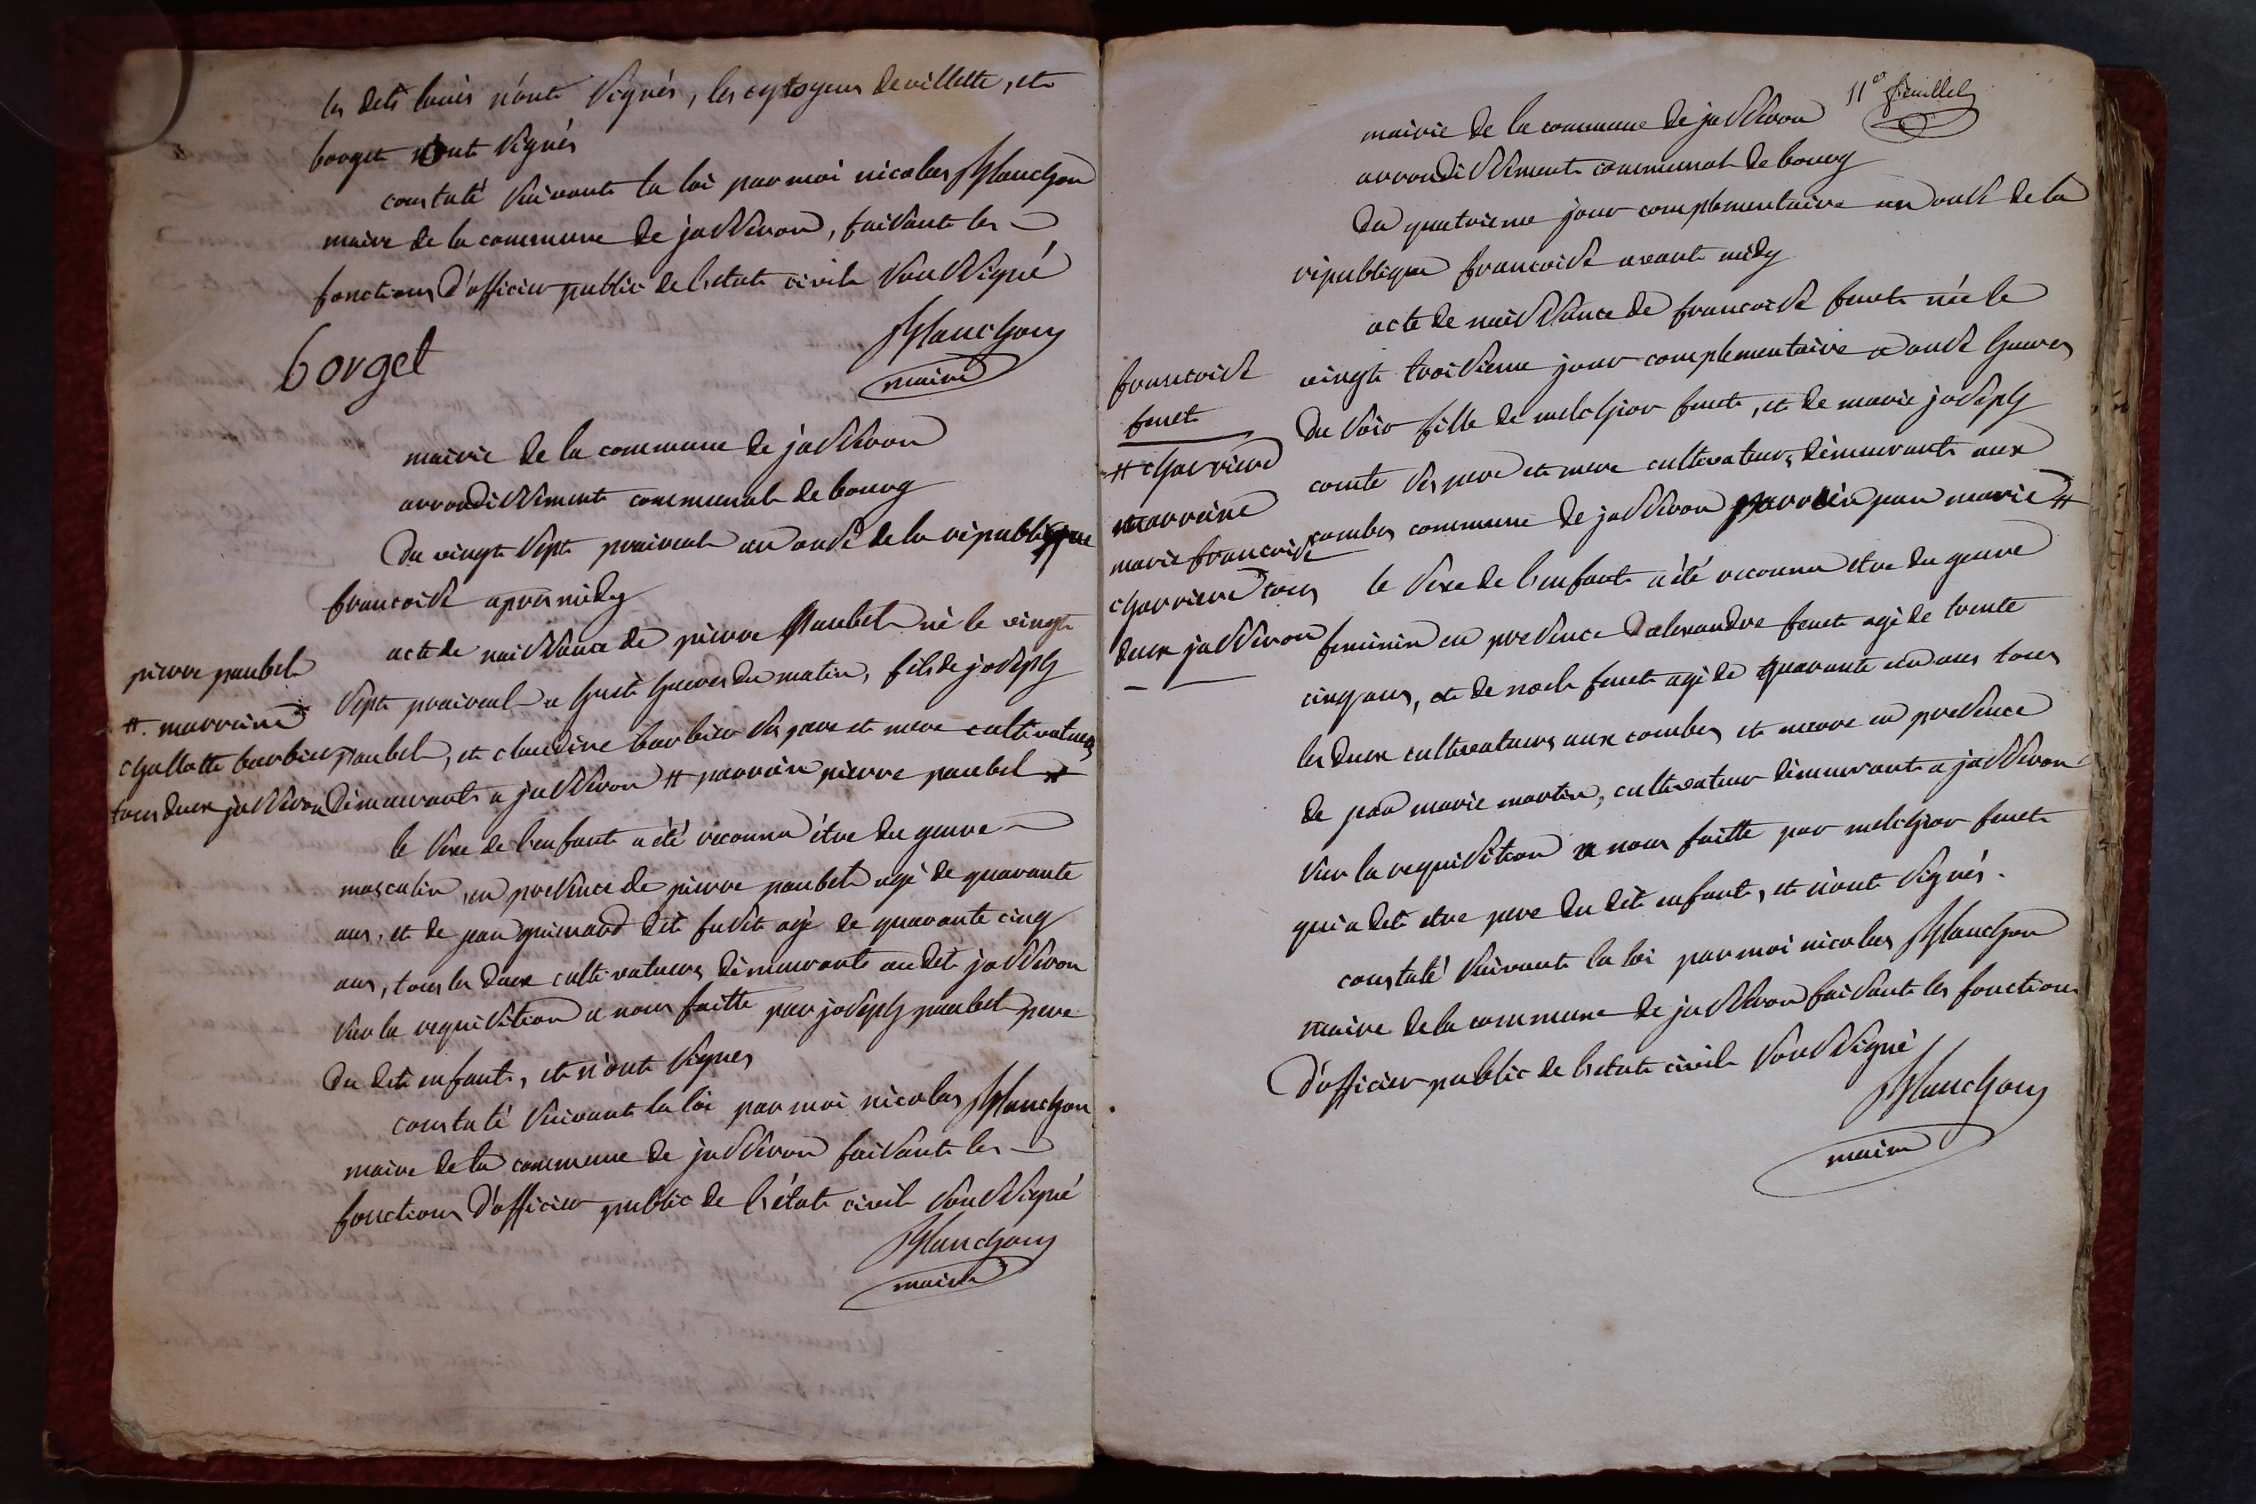 les dets louis n'ont signés, les cytoyens devillette, et
borget n'ont signés
constaté suivant la loi par moi nicolas planchon
maire de la commune de jasseron, faisant les
fonctions d'officier public de l'etat civil soussigné
planchon
maire
borget
mairie de la commune de jasseron
arrondissement communal de bourg
du vingt sept prairial an onse de la république
francoise apres midy
acte de naissance de pierre paubel né le vingt
sept prairial a huit heures du matin, fils de joseph
paubel, et claudine barbier ses pere et mere cultivateurs
demeurant a jasseron # parrain pierre paubel #
le sexe de l'enfant a été reconnu être du genre
masculin, en presence de pierre paubel agé de quarante
ans, et de jean guinard dit fusit agé de quarante cinq
ans, tous les deux cultivateurs, demeurant au dit jasseron
sur la requisition a nous faitte par joseph paubel pere
du dit enfant, et n'ont signes
constaté suivant la loi par moi nicolas planchon
maire de la commune de jasseron faisant les
fonctions d'officier public de l'état civil soussigné
planchon
maire
pierre paubel
# marraine
challotte barbier
tous deux jasseron
11e feuillet
mairie de la commune de jasseron
arrondissement communal de bourg
du quatrieme jour complementaire an onse de la
république francoise avant midy
acte de naissance de francoise fenet née le
vingt troisieme jour complementaire a onse heures
du soir fille de melchior fenet, et de marie joseph
comte ses pere et mere cultivateurs, demeurant aux
combes commune de jasseron parrain jean marie #
le sexe de l'enfant a été reconnu etre du genre
feminin en presence d'alexandre fenet agé de trente
cinq ans, et de noel fenet agé de quarante un ans tous
les deux cultivateurs aux combes et encore en presence
de jean marie martin, cultivateur demeurant a jasseron
sur la requisition a nous faitte par melchior fenet
qui a dit etre pere du dit enfant, et n'ont signés.
constaté suivant la loi par moi nicolas planchon
maire de la commune de jasseron faisant les fonctions
d'officier public de l'etat civil soussigné
planchon
maire
francoise
fenet
# charriere
marraine
marie francoise
charriere tous
deux jasseron